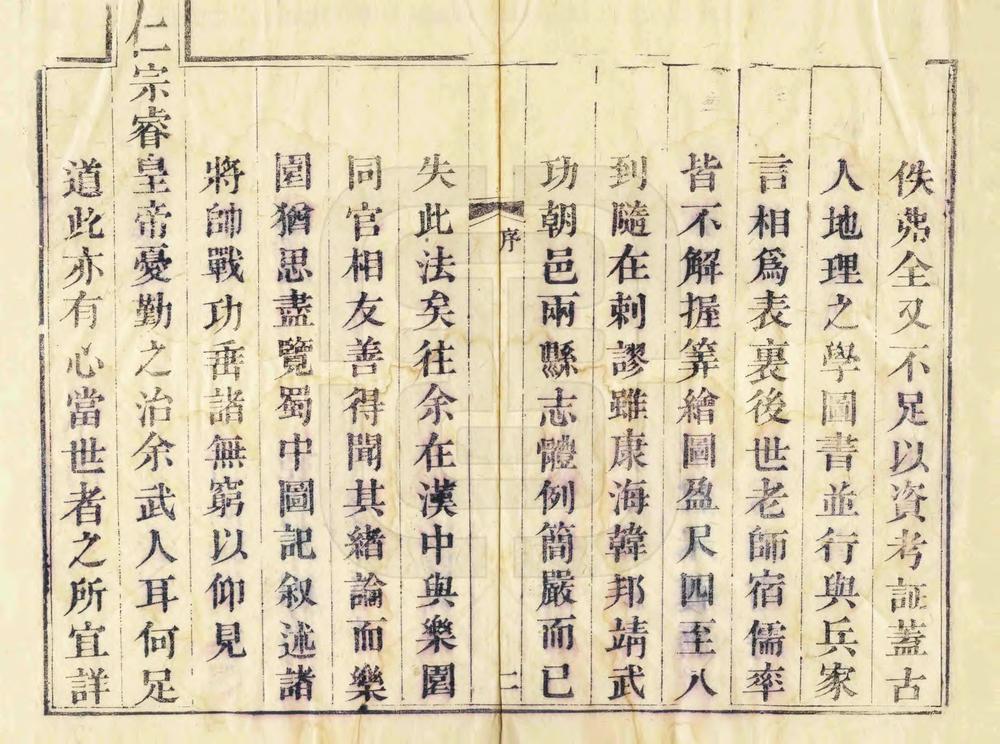 佚弗全又不足以資考証蓋古
人地理之學圖書並行與兵家
言相爲表裏後世老師宿儒率
皆不解握筭繪圖盈尺四至八
到隨在剌謬雖康海韓邦靖武
功朝邑兩縣志體例簡嚴而已
序
二
失此法矣往余在漢中與樂園
同官相友善得聞其緒論而樂
園猶思盡覽蜀中圖記叙述諸
將帥戰功垂諸無窮以仰見
仁宗睿皇帝憂勤之治余武人耳何足
道此亦有心當世者之所宜詳